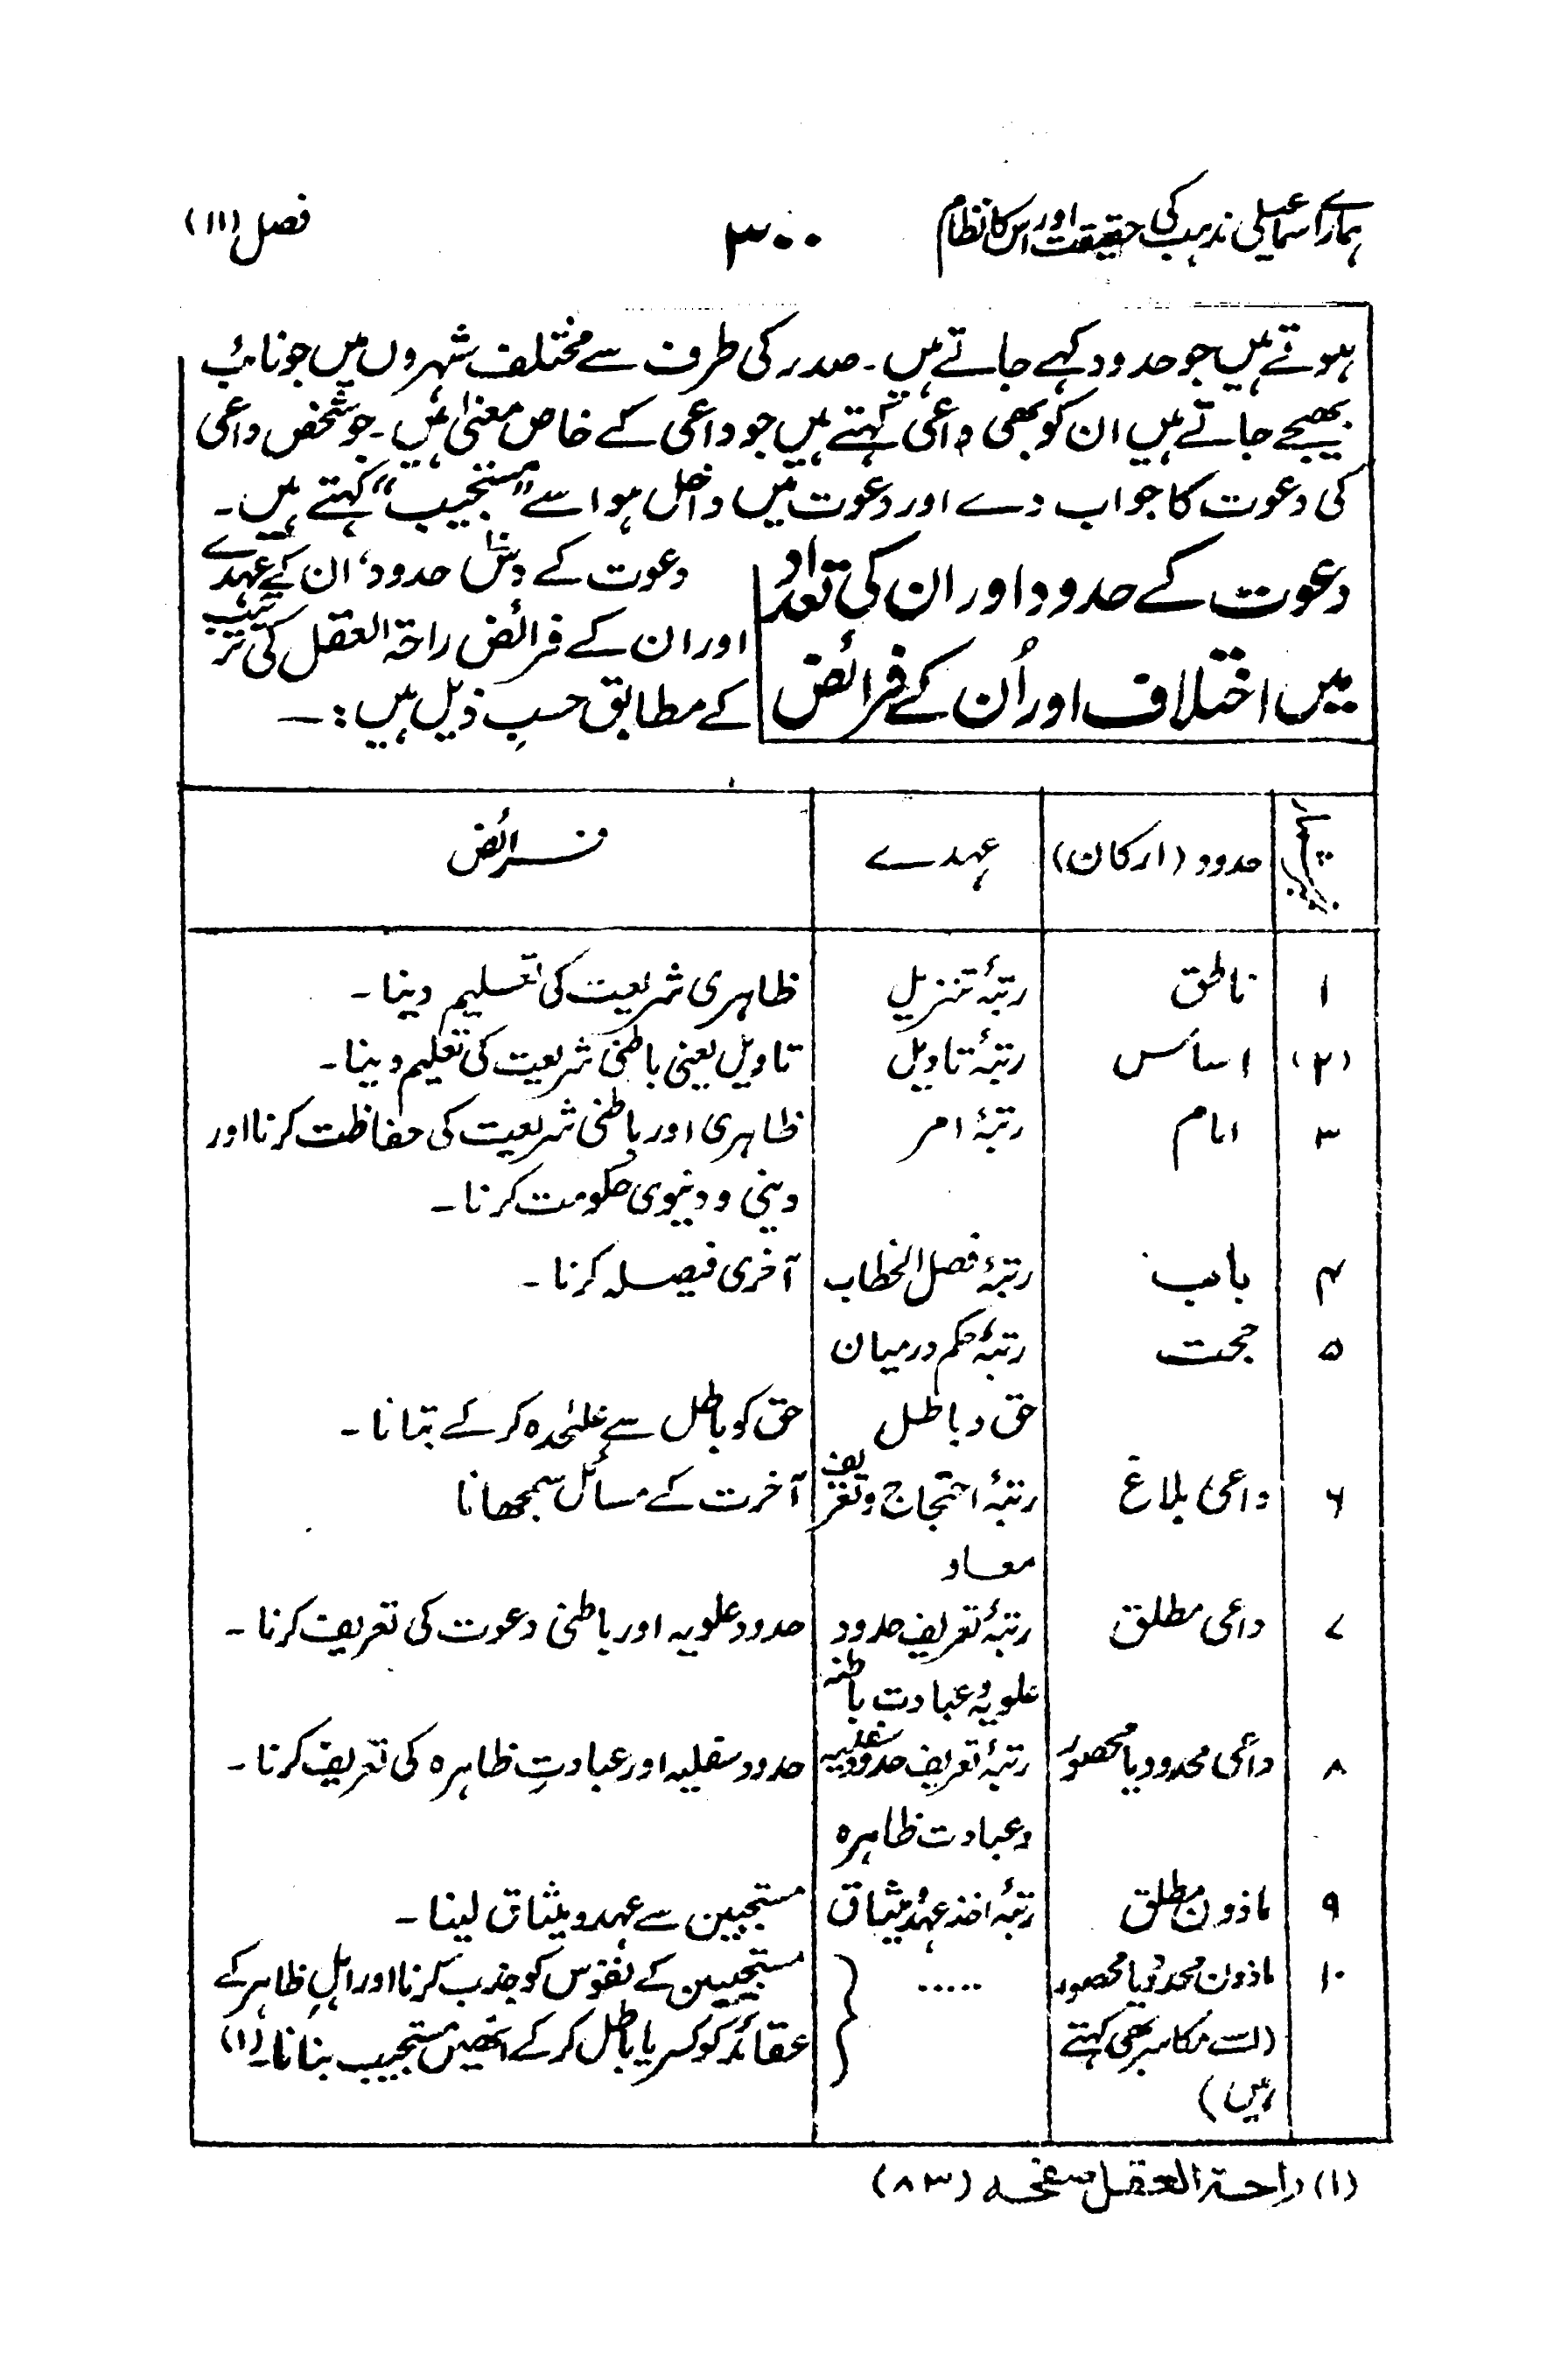 ہمارے اسماعیلی مذہب کی حقیقت اور اس کا نظام ۳۰۰ فصل (۱۱)
ہوتے ہیں جو حدود کہے جاتے ہیں۔ صدر کی طرف سے مختلف شہروں میں جو نائب
بھیجے جاتے ہیں ان کو بھی داعی کہتے ہیں جو داعی کے خاص معنیٰ ہیں۔ جو شخص داعی
کی دعوت کا جواب دے اور دعوت میں داخل ہو اسے "مستجیب" کہتے ہیں۔
دعوت کے حدود اور ان کی تعداد
میں اختلاف اور اُن کے فرائض
دعوت کے دس حدود، ان کے عہدے
اور ان کے فرائض راحۃ العقل کی ترتیب
کے مطابق حسبِ ذیل ہیں :—
حدود (ارکان) عہدے فرائض
۱ ناطق رتبۂ تنزیل ظاہری شریعت کی تعلیم دینا۔
(۲) اساس رتبۂ تاویل تاویل یعنی باطنی شریعت کی تعلیم دینا۔
۳ امام رتبۂ امر ظاہری اور باطنی شریعت کی حفاظت کرنا اور
دینی و دنیوی حکومت کرنا۔
۴ باب رتبۂ فصل الخطاب آخری فیصلہ کرنا۔
۵ حجت رتبۂ حکم درمیان
حق و باطل حق کو باطل سے علیٰحدہ کر کے بتانا۔
۶ داعی بلاغ رتبۂ احتجاج و تعریف آخرت کے مسائل سمجھانا
معاد
۷ داعی مطلق رتبۂ تعریف حدود حدود علویہ اور باطنی دعوت کی تعریف کرنا۔
علویہ و عبادت باطنہ
۸ داعی محدود یا محصور رتبۂ تعریف حدود سفلیہ حدود سفلیہ اور عبادتِ ظاہرہ کی تعریف کرنا۔
و عبادت ظاہرہ
۹ ماذون مطلق رتبۂ اخذ عہد و میثاق مستجیبین سے عہد و میثاق لینا۔
۱۰ ماذون محدود یا محصور ..... مستجیبین کے نفوس کو جذب کرنا اور اہلِ ظاہر کے
(اسے مکاسر بھی کہتے عقائد کو کسر یا باطل کر کے انھیں مستجیب بنانا۔ (۱)
ہیں)
(۱) راحۃ العقل صفحہ (۸۳)